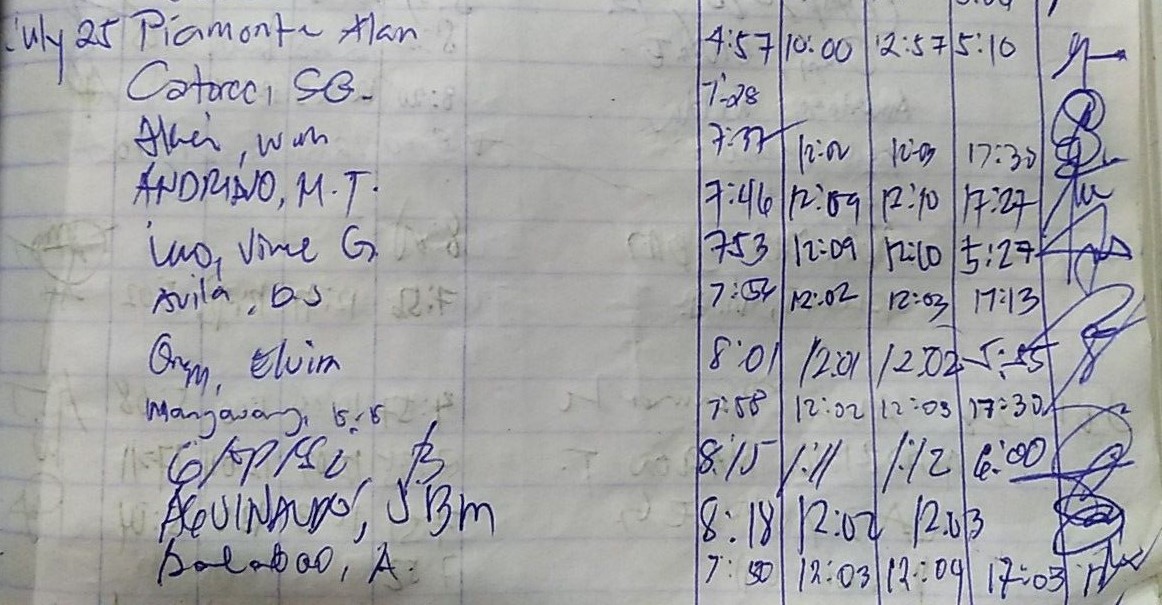 July 25 Piamonte Alan 4:57 10:00 12:57 5:10
SG. 7:28
7:37 12:02 12:03 17:30
ANDRINO, M.T. 7:46 12:09 12:10 17:27
Vince G. 753 12:09 12:10 5:27
Avila, D.S 7:54 12:02 12:03 17:13
Elvira 8:01 12:01 12:02 5:55
Mangawang, 7:58 12:02 12:03 17:30
B 8:15 1:11 1:12 6:00
AGUINALDO, JBm 8:18 12:02 12:03
A. 7:50 12:03 12:04 17:03